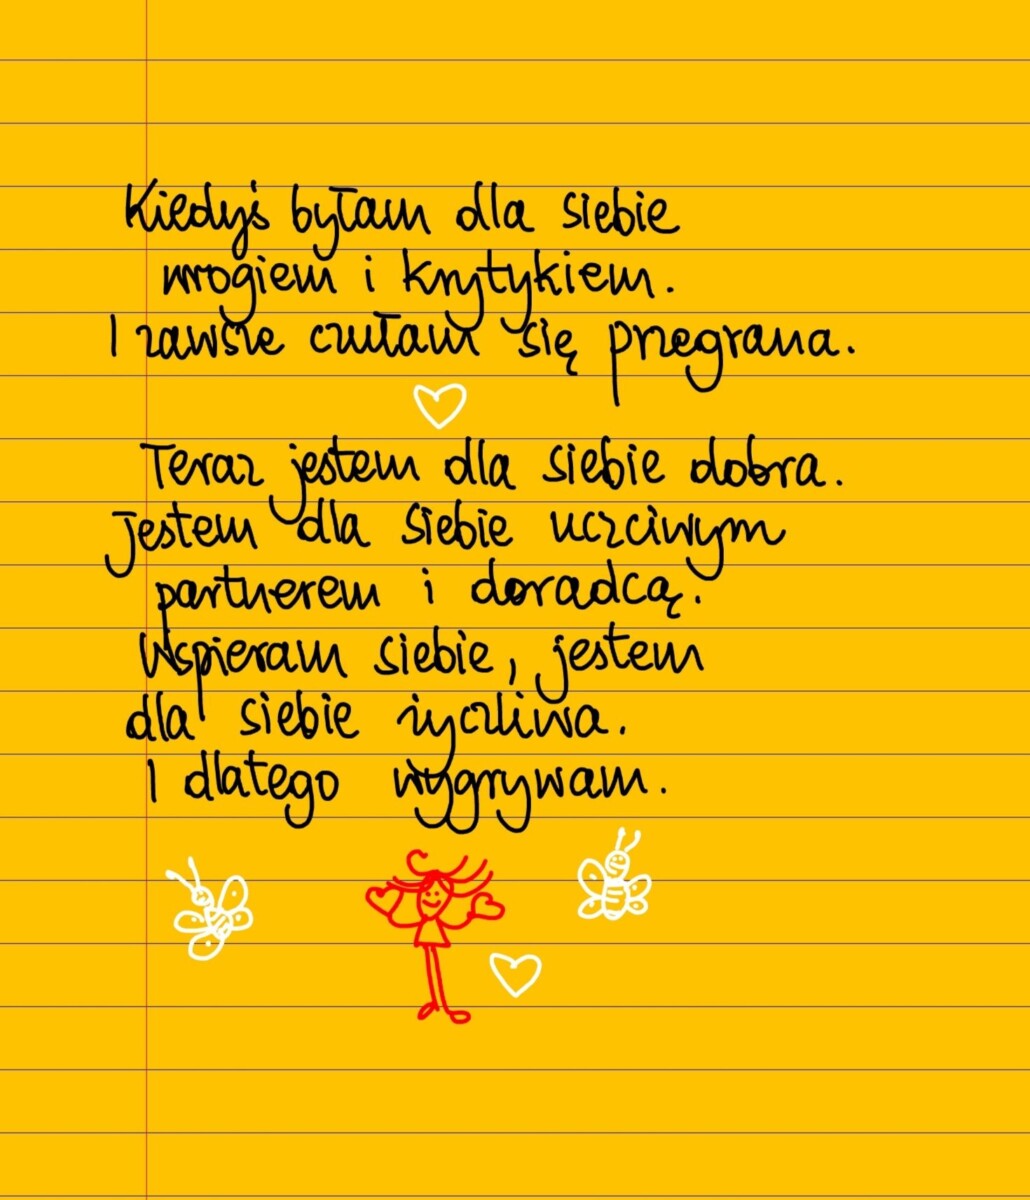 Kiedyś byłam dla siebie
wrogiem i krytykiem.
I zawsze czułam się przegrana.
Teraz jestem dla siebie dobra.
Jestem dla siebie uczciwym
partnerem i doradcą.
Wspieram siebie, jestem
dla siebie życzliwa.
I dlatego wygrywam.